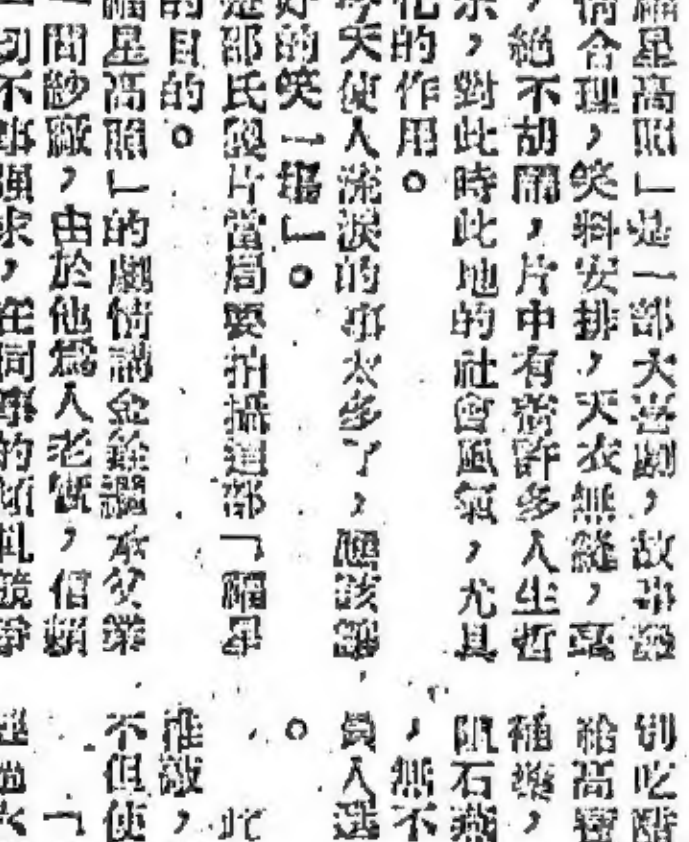 福星高照」是一部大喜劇，故事
情合理，笑料安排，天衣無縫，
，絕不胡鬧，片中有着許多人生哲
示，對此時此地的社會風氣，尤具
化的作用。
今天使人流淚的事太多了，應該讓
好的笑一場」。
是邵氏製片當局要拍攝這部「福星
的目的。
福星高照」的劇情講金銓繼承父業
一間紗廠，由於他爲人老實，信賴
切不事強求，在同事的傾軋競爭
切吃醋
給高寶
種樂，
阻石燕
，無不
員人選
。
此
推敲，
不但使
「